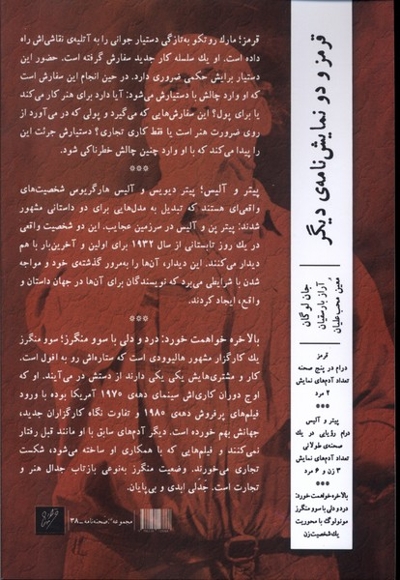 قرمز و دو نمایش‌نامه‌ی دیگر
جان لوگان
آراز بارسقیان
معین محب‌علیان
قرمز
درام در پنج صحنه
تعداد آدم‌های نمایش
۲ مرد
***
پیتر و آلیس
درام رؤیایی در یک
صحنه‌ی طولانی
تعداد آدم‌های نمایش
۳ زن و ۶ مرد
***
بالاخره خواهمت خورد:
درد و دلی با سو و منگرز
مونولوگ با محوریت
یک شخصیت زن
قرمز؛ مارک روتکو به‌تازگی دستیار جوانی را به آتلیه‌ی نقاشی‌اش راه
داده است. او یک سلسله کار جدید سفارش گرفته است. حضور این
دستیار برایش حکمی ضروری دارد. در حین انجام این سفارش است
که او وارد چالش با دستیارش می‌شود: آیا دارد برای هنر کار می‌کند
یا برای پول؟ این سفارش‌هایی که می‌گیرد و پولی که در می‌آورد از
روی ضرورت هنر است یا فقط کاری تجاری؟ دستیارش جرئت این
را پیدا می‌کند که با او وارد چنین چالش خطرناکی شود.
***
پیتر و آلیس؛ پیتر دیویس و آلیس هارگریوس شخصیت‌های
واقعی‌ای هستند که تبدیل به مدل‌هایی برای دو داستانی مشهور
شدند: پیتر پن و آلیس در سرزمین عجایب. این دو شخصیت واقعی
در یک روز تابستانی از سال ۱۹۳۲ برای اولین و آخرین‌بار با هم
دیدار می‌کنند. این دیدار، آن‌ها را به‌مرور گذشته‌ی خود و مواجه
شدن با شرایطی می‌برد که نویسندگان برای آن‌ها در جهان داستان و
واقع، ایجاد کردند.
***
بالاخره خواهمت خورد: درد و دلی با سو و منگرز؛ سو منگرز
یک کارگزار مشهور هالیوودی است که ستاره‌اش رو به افول است.
کار و مشتری‌هایش یکی یکی دارند از دستش در می‌آیند. او که
اوج دوران کاری‌اش سینمای دهه‌ی ۱۹۷۰ آمریکا بوده با ورود
فیلم‌های پرفروش دهه‌ی ۱۹۸۰ و تفاوت نگاه کارگزاران جدید،
جهانش بهم خورده است. دیگر آدم‌های سابق با او مانند قبل رفتار
نمی‌کنند و فیلم‌هایی که با همکاری او ساخته می‌شود، شکست
تجاری می‌خورند. وضعیت منگرز به‌نوعی بازتاب جدال هنر و
تجارت است. جدلی ابدی و بی‌پایان.
مجموعه‌ی صحنه‌نامه - ۳۸